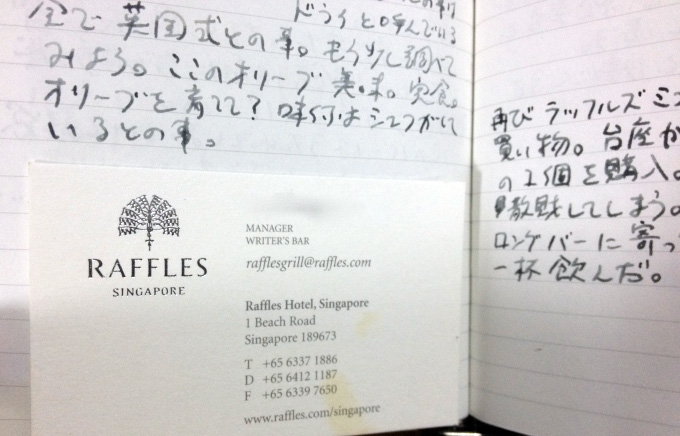 どうくと呼んでいる
全で英国式との事。もう少し調べて
みよう。ここのオリーブ美味。実食。
オリーブを育てて？味付はシェフがして
いるとの事。
RAFFLES
SINGAPORE
MANAGER
WRITER'S BAR
rafflesgrill@raffles.com
Raffles Hotel, Singapore
1 Beach Road
Singapore 189673
T +65 6337 1886
D +65 6412 1187
F +65 6339 7650
www.raffles.com/singapore
再びラッフルズ
買い物。台座が
の2個を購入。
散財してしまう。
ロングバーに寄っ
一杯飲んだ。